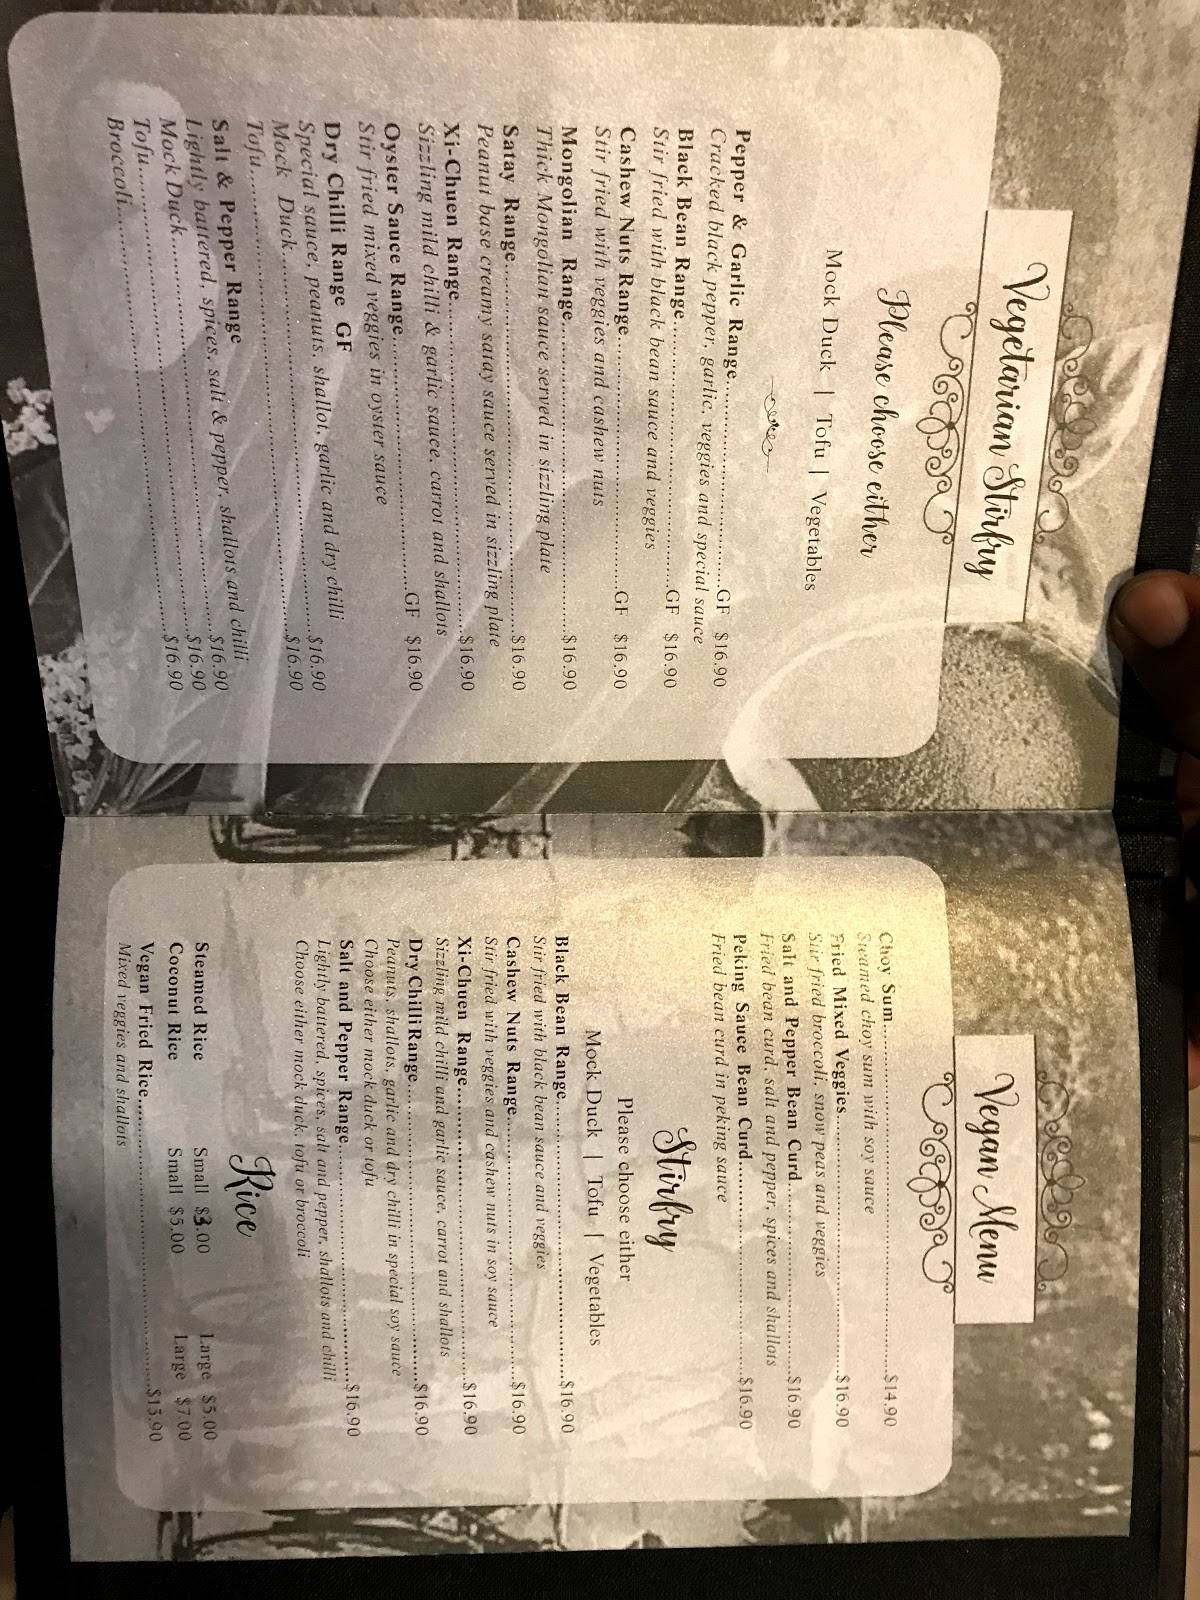 Vegetarian Stirfry
Please choose either
Mock Duck | Tofu | Vegetables
Pepper & Garlic Range..............................GF $16.90
Cracked black pepper, garlic, veggies and special sauce
Black Bean Range..............................GF $16.90
Stir fried with black bean sauce and veggies
Cashew Nuts Range..............................GF $16.90
Stir fried with veggies and cashew nuts
Mongolian Range..............................$16.90
Thick Mongolian sauce served in sizzling plate
Satay Range..............................$16.90
Peanut base creamy satay sauce served in sizzling plate
Xi-Chuen Range..............................$16.90
Sizzling mild chilli & garlic sauce, carrot and shallots
Oyster Sauce Range..............................GF $16.90
Stir fried mixed veggies in oyster sauce
Dry Chilli Range GF
Special sauce, peanuts, shallot, garlic and dry chilli
Mock Duck..............................$16.90
Tofu..............................$16.90
Salt & Pepper Range
Lightly battered, spices, salt & pepper, shallots and chilli
Mock Duck..............................$16.90
Tofu..............................$16.90
Broccoli..............................$16.90
Vegan Menu
Choy Sum..............................$14.90
Steamed choy sum with soy sauce
Fried Mixed Veggies..............................$16.90
Stir fried broccoli, snow peas and veggies
Salt and Pepper Bean Curd..............................$16.90
Fried bean curd, salt and pepper, spices and shallots
Peking Sauce Bean Curd..............................$16.90
Fried bean curd in peking sauce
Stirfry
Please choose either
Mock Duck | Tofu | Vegetables
Black Bean Range..............................$16.90
Stir fried with black bean sauce and veggies
Cashew Nuts Range..............................$16.90
Stir fried with veggies and cashew nuts in soy sauce
Xi-Chuen Range..............................$16.90
Sizzling mild chilli and garlic sauce, carrot and shallots
Dry Chilli Range..............................$16.90
Peanuts, shallots, garlic and dry chilli in special soy sauce
Choose either mock duck or tofu
Salt and Pepper Range..............................$16.90
Lightly battered, spices, salt and pepper, shallots and chilli
Choose either mock duck, tofu or broccoli
Rice
Steamed Rice Small $3.00 Large $5.00
Coconut Rice Small $5.00 Large $7.00
Vegan Fried Rice..............................$15.90
Mixed veggies and shallots